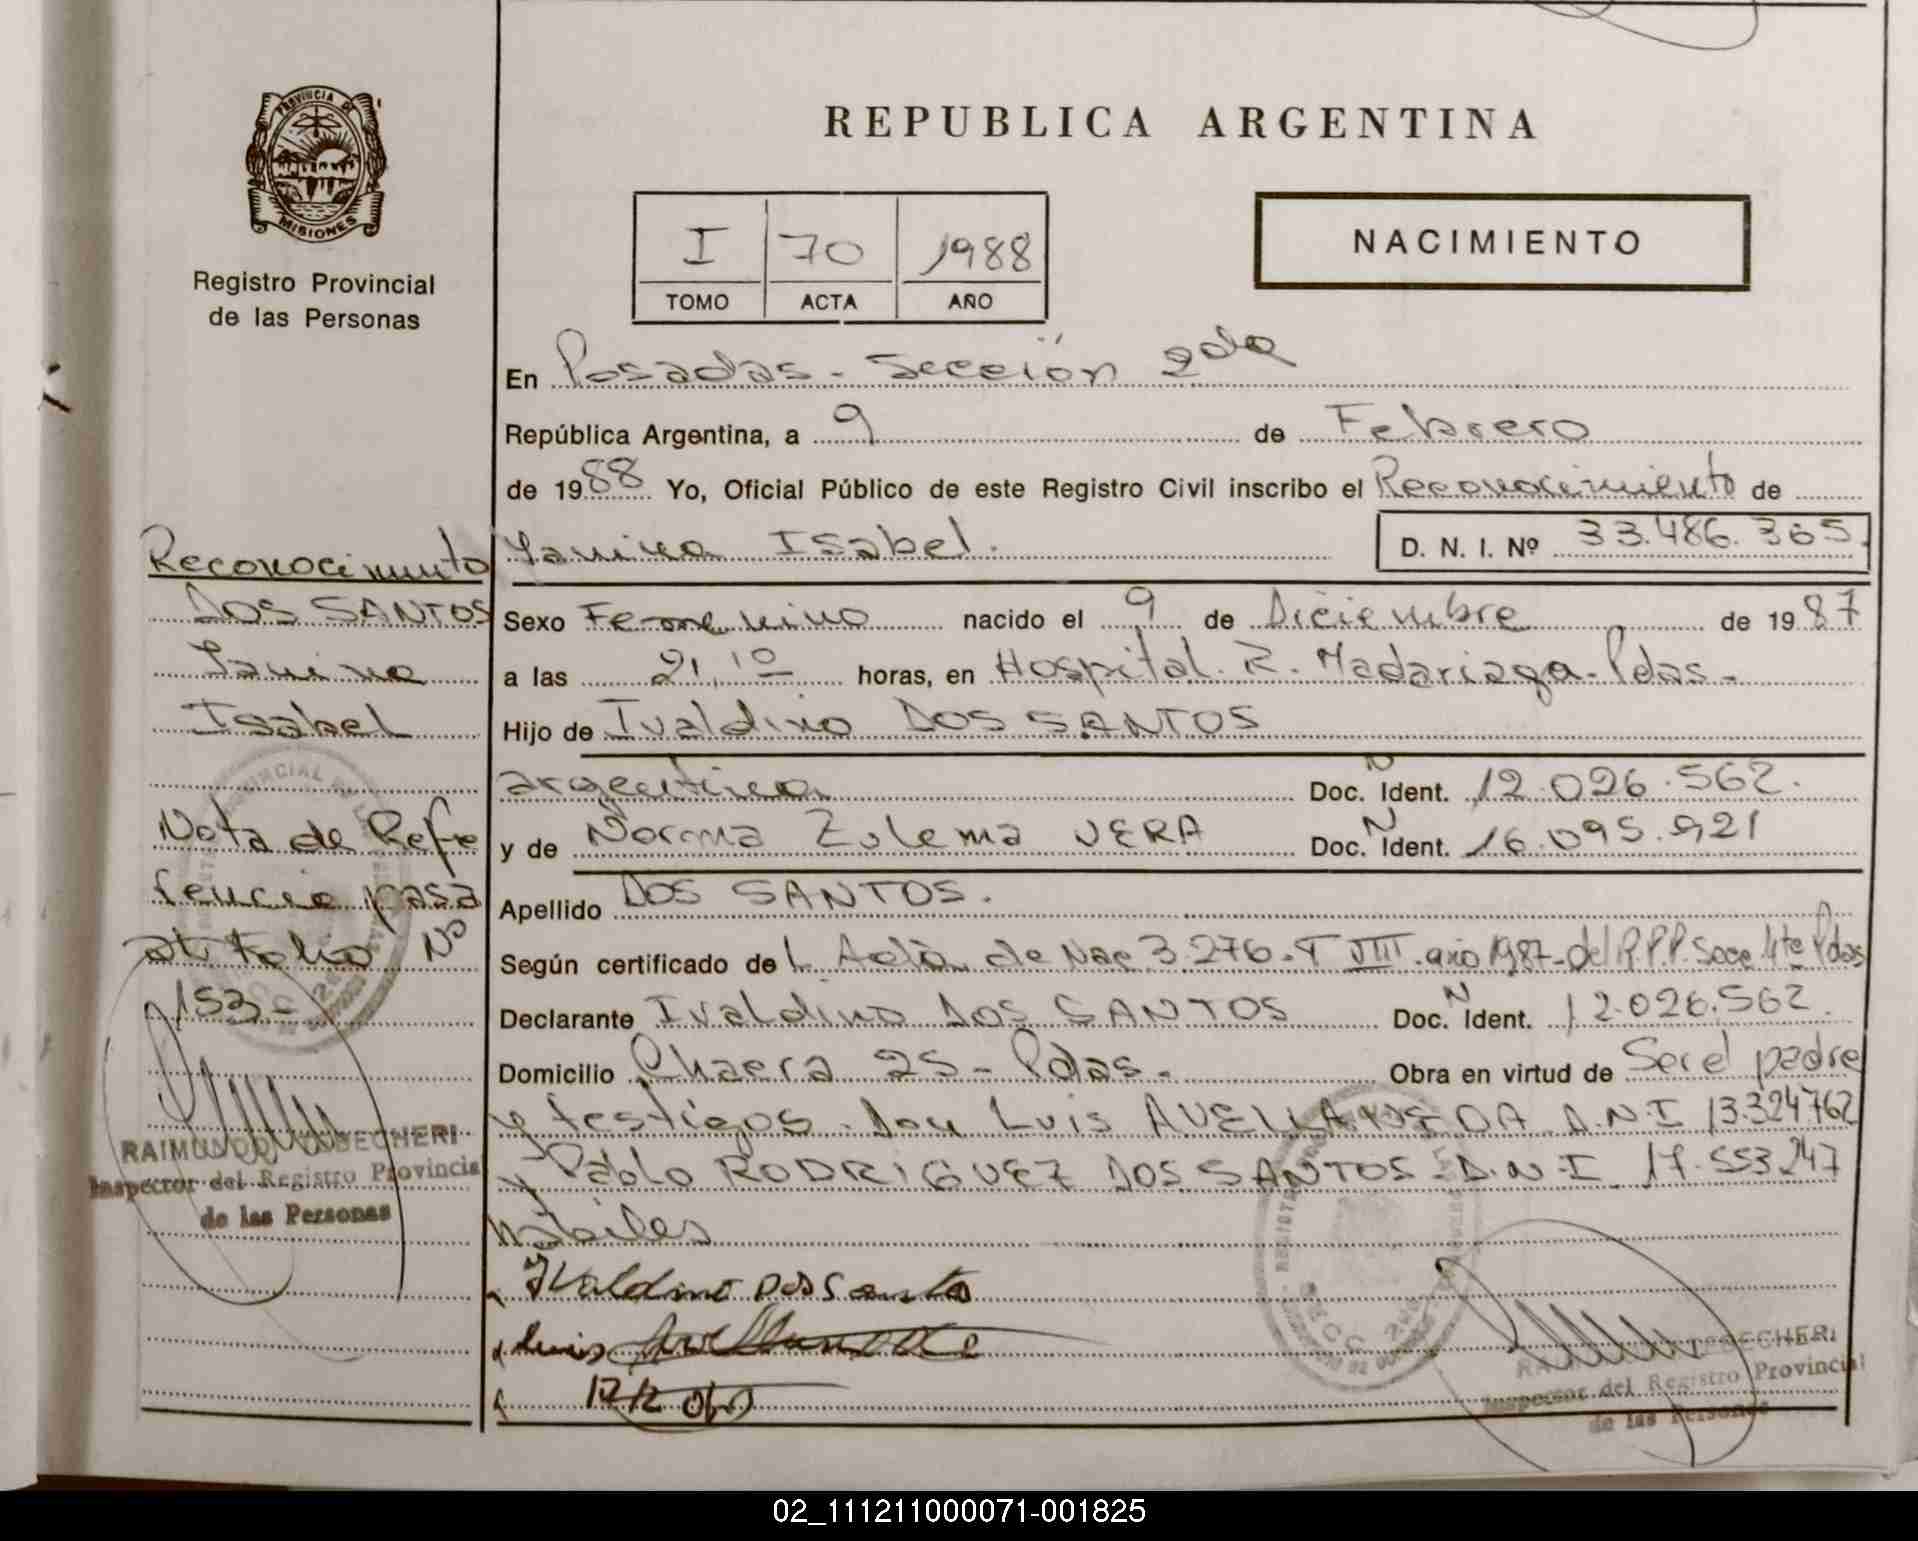 PROVINCIA DE
MISIONES
Registro Provincial
de las Personas
REPUBLICA ARGENTINA
I 70 1988
TOMO ACTA AÑO
NACIMIENTO
En Posadas - Sección 2da
República Argentina, a 9 de Febrero
de 1988 Yo, Oficial Público de este Registro Civil inscribo el Reconocimiento de
Yanina Isabel. D. N. I. Nº 33.486.365.
Sexo Femenino nacido el 9 de Diciembre de 1987
a las 21,10 horas, en Hospital. R. Madariaga - Pdas -
Hijo de Ivaldino DOS SANTOS
argentina Doc. N Ident. 12.026.562.
y de Norma Zulema VERA Doc. N Ident. 16.095.921
Apellido DOS SANTOS.
Según certificado del Acta de Nac 3.276. T VIII año 1987 - del R.P.P. Secc 4te Pdas
Declarante Ivaldino DOS SANTOS Doc. N Ident. 12.026.562.
Domicilio Chacra 25 - Pdas. Obra en virtud de Ser el padre
y testigos. Don Luis AVELLANEDA D.N.I 13.324762
y Pablo RODRIGUEZ DOS SANTOS - D.N.I. 17.553.247
hábiles
Ivaldino Dos Santos
Luis Avellaneda
Reconocimiento
DOS SANTOS
Yanina
Isabel
Nota de Refe
rencia pasa
al Folio Nº
153 -
RAIMUNDO
Inspector del Registro Provincial
de las Personas
Inspector del Registro Provincial
de las Personas
02_111211000071-001825